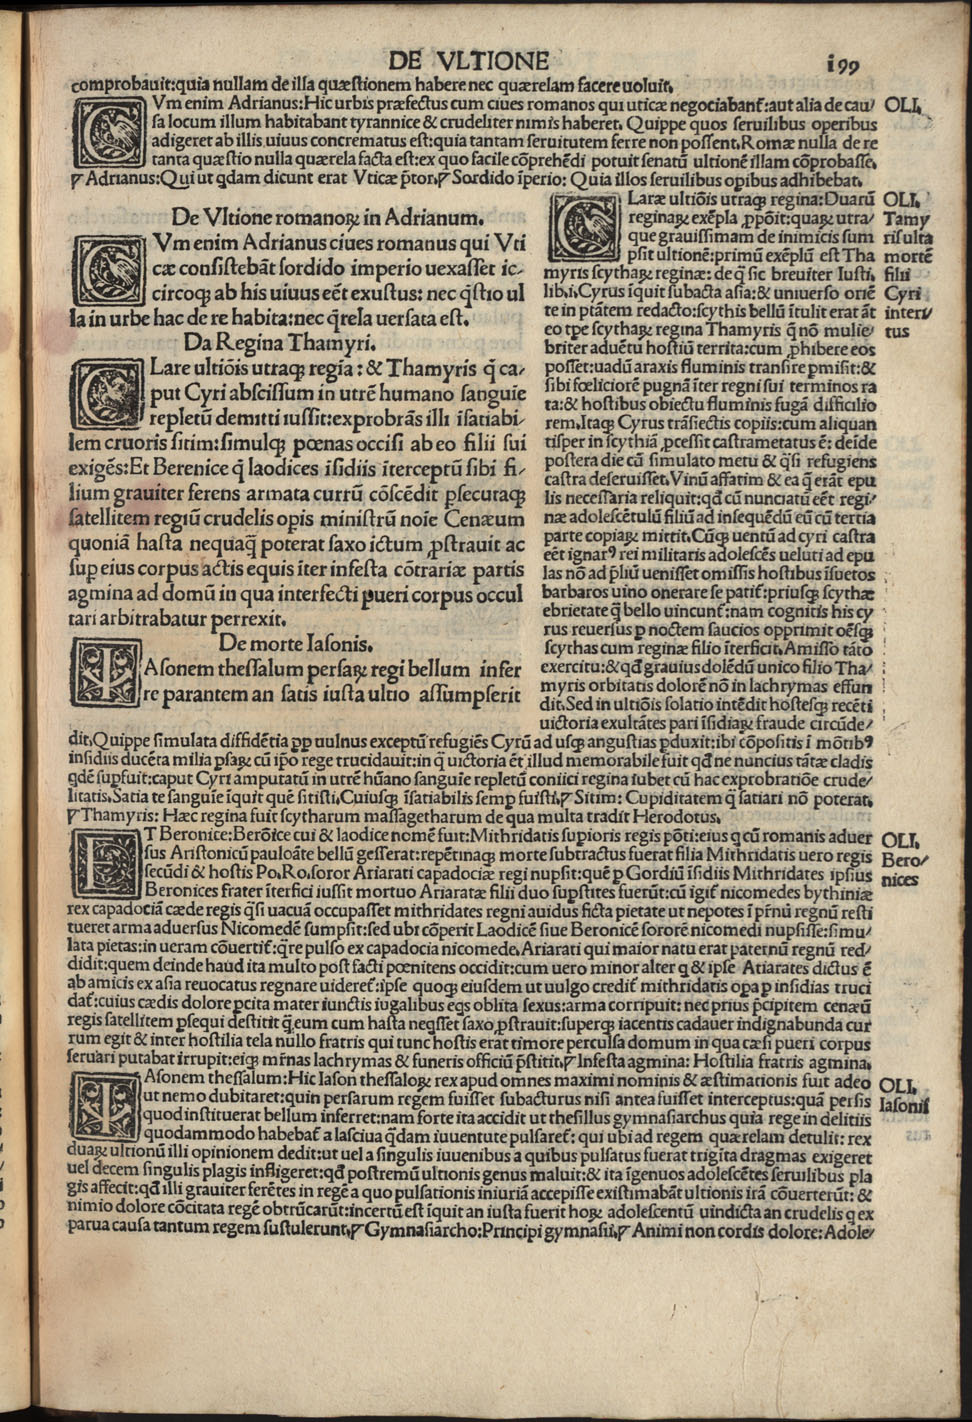 DE VLTIONE
i99
comprobauit:quia nullam de illa quæstionem habere nec quærelam facere uoluit.
CVm enim Adrianus:Hic urbis præfectus cum ciues romanos qui uticæ negociabant̃:aut alia de cau/
sa locum illum habitabant tyrannice & crudeliter nimis haberet. Quippe quos seruilibus operibus
adigeret ab illis uiuus concrematus est:quia tantam seruitutem ferre non possent.Romæ nulla de re
tanta quæstio nulla quærela facta est:ex quo facile cõprehẽdi potuit senatũ ultionẽ illam cõprobasse.
Adrianus:Qui ut qdam dicunt erat Vticæ p̃tor. Sordido ĩperio: Quia illos seruilibus opibus adhibebat.
OLI.
De Vltione romanoꝝ in Adrianum.
CVm enim Adrianus ciues romanus qui Vti
cæ consistebãt sordido imperio uexasset ic-
circoqꝫ ab his uiuus eẽt exustus: nec q̃stio ul
la in urbe hac de re habita:nec q̃rela uersata est.
Da Regina Thamyri.
CLare ultiõis utraqꝫ regĩa : & Thamyris q̃ ca/
put Cyri abscissum in utrẽ humano sanguĩe
repletũ demitti iussit:exprobrãs illi ĩsatiabi-
lem cruoris sitim:simulqꝫ pœnas occisi ab eo filii sui
exigẽs:Et Berenice q̃ laodices ĩsidiis ĩterceptũ sibi fi-
lium grauiter ferens armata currũ cõscẽdit ꝑsecutaqꝫ
satellitem regiũ crudelis opis ministrũ noĩe Cenæum
quoniã hasta nequaq̃ poterat saxo ictum ꝓstrauit ac
suꝑ eius corpus actis equis ĩter infesta cõtrariæ partis
agmina ad domũ in qua interfecti pueri corpus occul
tari arbitrabatur perrexit.
De morte Iasonis.
IAsonem thessalum persaꝝ regi bellum infer
re parantem an satis iusta ultio assumpserit
CLaræ ultiõis utraqꝫ regina:Duarũ
reginaꝝ exẽpla ꝓpõit:quaꝝ utra/
que grauissimam de inimicis sum
psit ultionẽ:primũ exẽplũ est Tha
myris scythaꝝ reginæ: de q̃ sic breuiter Iusti.
lib.i.Cyrus ĩquit subacta asia:& uniuerso oriẽ
te in ptãtem redacto:scythis bellũ ĩtulit erat ãt
eo tꝑe scythaꝝ regina Thamyris q̃ nõ mulie/
briter aduẽtu hostiũ territa:cum ꝓhibere eos
posset:uadũ araxis fluminis transire ꝑmisit:&
sibi fœliciorẽ pugnã ĩter regni sui terminos ra
ta:& hostibus obiectu fluminis fugã difficilio
rem.Itaqꝫ Cyrus trãsiectis copiis:cum aliquan
tisper in scythiã ꝓcessit castrametatus ẽ: deĩde
postera die cũ simulato metu & q̃si refugiens
castra deseruisset.Vinũ affatim & ea q̃ erãt epu
lis necessaria reliquit:qđ cũ nunciatũ eẽt regi/
næ adolescẽtulũ filiũ ad insequẽdũ eũ cũ tertia
parte copiaꝝ mittit.Cũqꝫ uentũ ad cyri castra
eẽt ignarꝰ rei militaris adolescẽs ueluti ad epu
las nõ ad p̃liũ uenisset omissis hostibus ĩsuetos
barbaros uino onerare se patit̃:priusqꝫ scythæ
ebrietate q̃ bello uincunt̃:nam cognitis his cy
rus reuersus ꝑ noctem saucios opprimit oẽsqꝫ
scythas cum reginæ filio ĩterficit.Amisso tãto
exercitu:& qđ grauius dolẽdũ unico filio Tha/
myris orbitatis dolorẽ nõ in lachrymas effun
dit.Sed in ultiõis solatio intẽdit hostesqꝫ recẽti
uictoria exultãtes pari ĩsidiaꝝ fraude circũde/
OLI.
Tamy
ris ulta
mortẽ
filii
Cyri
interi/
tus
dit.Quippe simulata diffidẽtia ꝓꝑ uulnus exceptũ refugiẽs Cyrũ ad usqꝫ angustias ꝑduxit:ibi cõpositis ĩ mõtibꝰ
insidiis ducẽta milia ꝑsaꝝ cũ ip̃o rege trucidauit:in q̃ uictoria ẽt illud memorabile fuit qđ ne nuncius tãtæ cladis
qdẽ suꝑfuit:caput Cyri amputatũ in utrẽ hũano sanguĩe repletũ coniici regina iubet cũ hac exprobratiõe crude/
litatis.Satia te sanguĩe ĩquit quẽ sitisti.Cuiusqꝫ ĩsatiabilis semꝑ fuisti. Sitim: Cupiditatem q̃ satiari nõ poterat.
Thamyris: Hæc regina fuit scytharum massagetharum de qua multa tradit Herodotus.
ET Beronice:Berõice cui & laodice nomẽ fuit:Mithridatis suꝑioris regis põti:eius q cũ romanis aduer
sus Aristonicũ pauloãte bellũ gesserat:repẽtinaqꝫ morte subtractus fuerat filia Mithridatis uero regis
secũdi & hostis Po.Ro.soror Ariarati capadociæ regi nupsit:quẽ ꝑ Gordiũ ĩsidiis Mithridates ipsius
Beronices frater ĩterfici iussit mortuo Ariaratæ filii duo suꝑstites fuerũt:cũ igit̃ nicomedes bythiniæ
rex capadociã cæde regis q̃si uacuã occupasset mithridates regni auidus ficta pietate ut nepotes ĩ pr̃nũ regnũ resti
tueret arma aduersus Nicomedẽ sumpsit:sed ubi cõperit Laodicẽ siue Beronicẽ sororẽ nicomedi nupsisse:simu/
lata pietas:in ueram cõuertit̃:q̃re pulso ex capadocia nicomede.Ariarati qui maior natu erat paternũ regnũ red/
didit:quem deinde haud ita multo post facti pœnitens occidit:cum uero minor alter q & ipse Atiarates dictus ẽ
ab amicis ex asia reuocatus regnare uideret̃:ipse quoqꝫ eiusdem ut uulgo credit̃ mithridatis opa ꝑ insidias truci
dat̃:cuius cædis dolore ꝑcita mater iunctis iugalibus eqs oblita sexus:arma corripuit: nec prius p̃cipitem cenæũ
regis satellitem ꝑsequi destitit q̃ eum cum hasta neqsset saxo ꝓstrauit:superqꝫ iacentis cadauer indignabunda cur
rum egit & inter hostilia tela nullo fratris qui tunc hostis erat timore perculsa domum in qua cæsi pueri corpus
seruari putabat irrupit:eiqꝫ mr̃nas lachrymas & funeris officiũ p̃stitit. Infesta agmina: Hostilia fratris agmina.
OLI.
Bero/
nices
IAsonem thessalum:Hic Iason thessaloꝝ rex apud omnes maximi nominis & æstimationis fuit adeo
ut nemo dubitaret:quin persarum regem fuisset subacturus nisi antea fuisset interceptus:quã persis
quod instituerat bellum inferret:nam forte ita accidit ut thesillus gymnasiarchus quia rege in delitiis
quodammodo habebat̃ a lasciua q̃dam iuuentute pulsaret̃: qui ubi ad regem quærelam detulit: rex
duaꝝ ultionũ illi opinionem dedit:ut uel a singulis iuuenibus a quibus pulsatus fuerat trigĩta dragmas exigeret
uel decem singulis plagis infligeret:qđ postremũ ultionis genus maluit:& ita ĩgenuos adolescẽtes seruilibus pla
gis affecit:qđ illi grauiter ferẽtes in regẽ a quo pulsationis iniuriã accepisse existimabãt ultionis irã cõuerterũt: &
nimio dolore cõcitata regẽ obtrũcarũt:incertũ est ĩquit an iusta fuerit hoꝝ adolescentũ uindicta an crudelis q ex
parua causa tantum regem sustulerunt. Gymnasiarcho:Principi gymnasii. Animi non cordis dolore: Adole/
OLI.
Iasonis